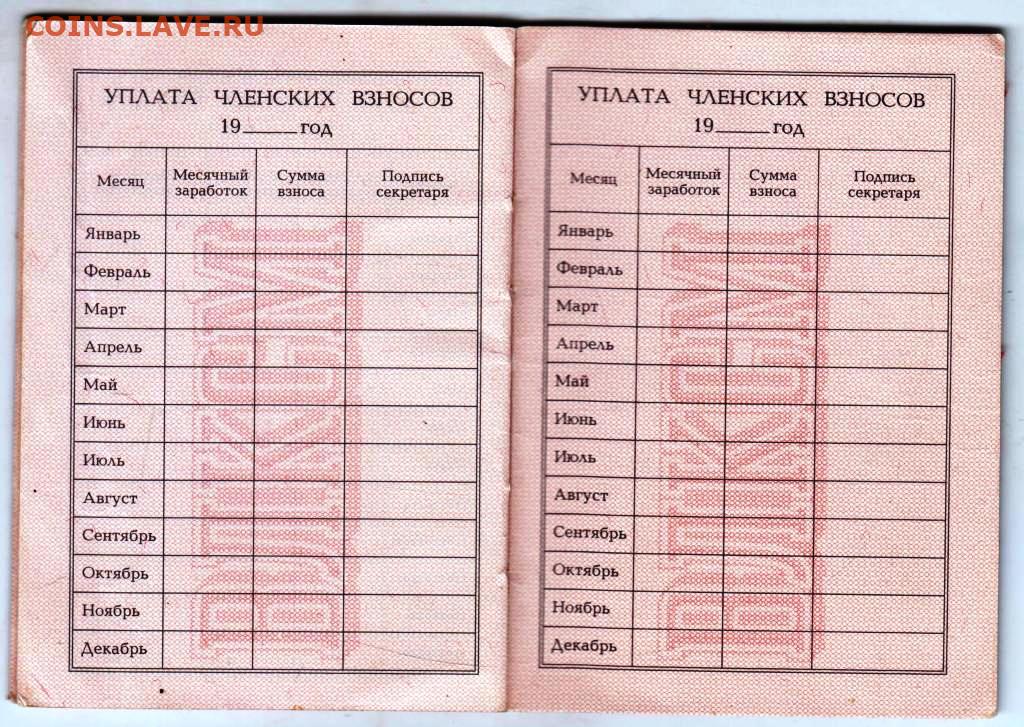 COINS.LAVE.RU
УПЛАТА ЧЛЕНСКИХ ВЗНОСОВ
19_____год
Месяц Месячный заработок Сумма взноса Подпись секретаря
Январь
Февраль
Март
Апрель
Май
Июнь
Июль
Август
Сентябрь
Октябрь
Ноябрь
Декабрь
ВЛКСМ
УПЛАТА ЧЛЕНСКИХ ВЗНОСОВ
19_____год
Месяц Месячный заработок Сумма взноса Подпись секретаря
Январь
Февраль
Март
Апрель
Май
Июнь
Июль
Август
Сентябрь
Октябрь
Ноябрь
Декабрь
ВЛКСМ